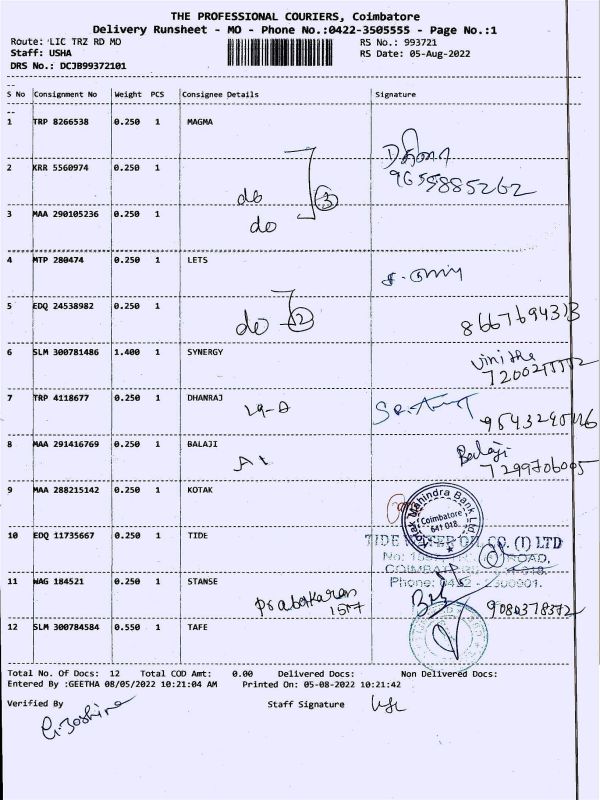 THE PROFESSIONAL COURIERS, Coimbatore
Delivery Runsheet - MO - Phone No.:0422-3505555 - Page No.:1
Route: LIC TRZ RD MO RS No.: 993721
Staff: USHA RS Date: 05-Aug-2022
DRS No.: DCJB99372101
S No Consignment No Weight PCS Consignee Details Signature
1 TRP 8266538 0.250 1 MAGMA
2 KRR 5560974 0.250 1
do 3 9655885262
3 MAA 290105236 0.250 1
do
4 MTP 280474 0.250 1 LETS
5 EDQ 24538982 0.250 1
do 2 8667694313
6 SLM 300781486 1.400 1 SYNERGY
7 TRP 4118677 0.250 1 DHANRAJ
8 MAA 291416769 0.250 1 BALAJI Balaji
7299706005
9 MAA 288215142 0.250 1 KOTAK
Kotak Mahindra Bank Ltd.
Coimbatore
641 018.
10 EDQ 11735667 0.250 1 TIDE
TIDE WATER OIL CO. (I) LTD
ROAD,
Phone: 0422 - 2300001.
11 WAG 184521 0.250 1 STANSE
Prabakaran
9080378372
12 SLM 300784584 0.550 1 TAFE
Total No. Of Docs: 12 Total COD Amt: 0.00 Delivered Docs: Non Delivered Docs:
Entered By :GEETHA 08/05/2022 10:21:04 AM Printed On: 05-08-2022 10:21:42
Verified By Staff Signature